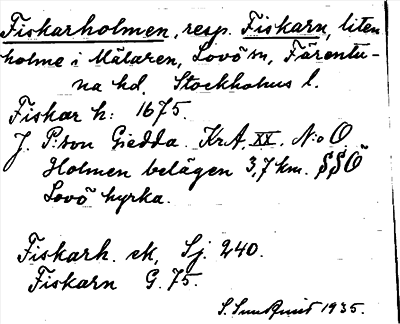 Fiskarholmen, resp. Fiskarn, liten
holme i Mälaren, Lovö sn, Färentu-
na hd, Stockholms l.
Fiskar h: 1675.
J. P:son Gedda. KrA. XX. N:o O.
Holmen belägen 3,7 km. SSÖ
Lovö kyrka.
Fiskarh. ek, Sj. 240.
Fiskarn G. 75.
S. Sundquist 1935.